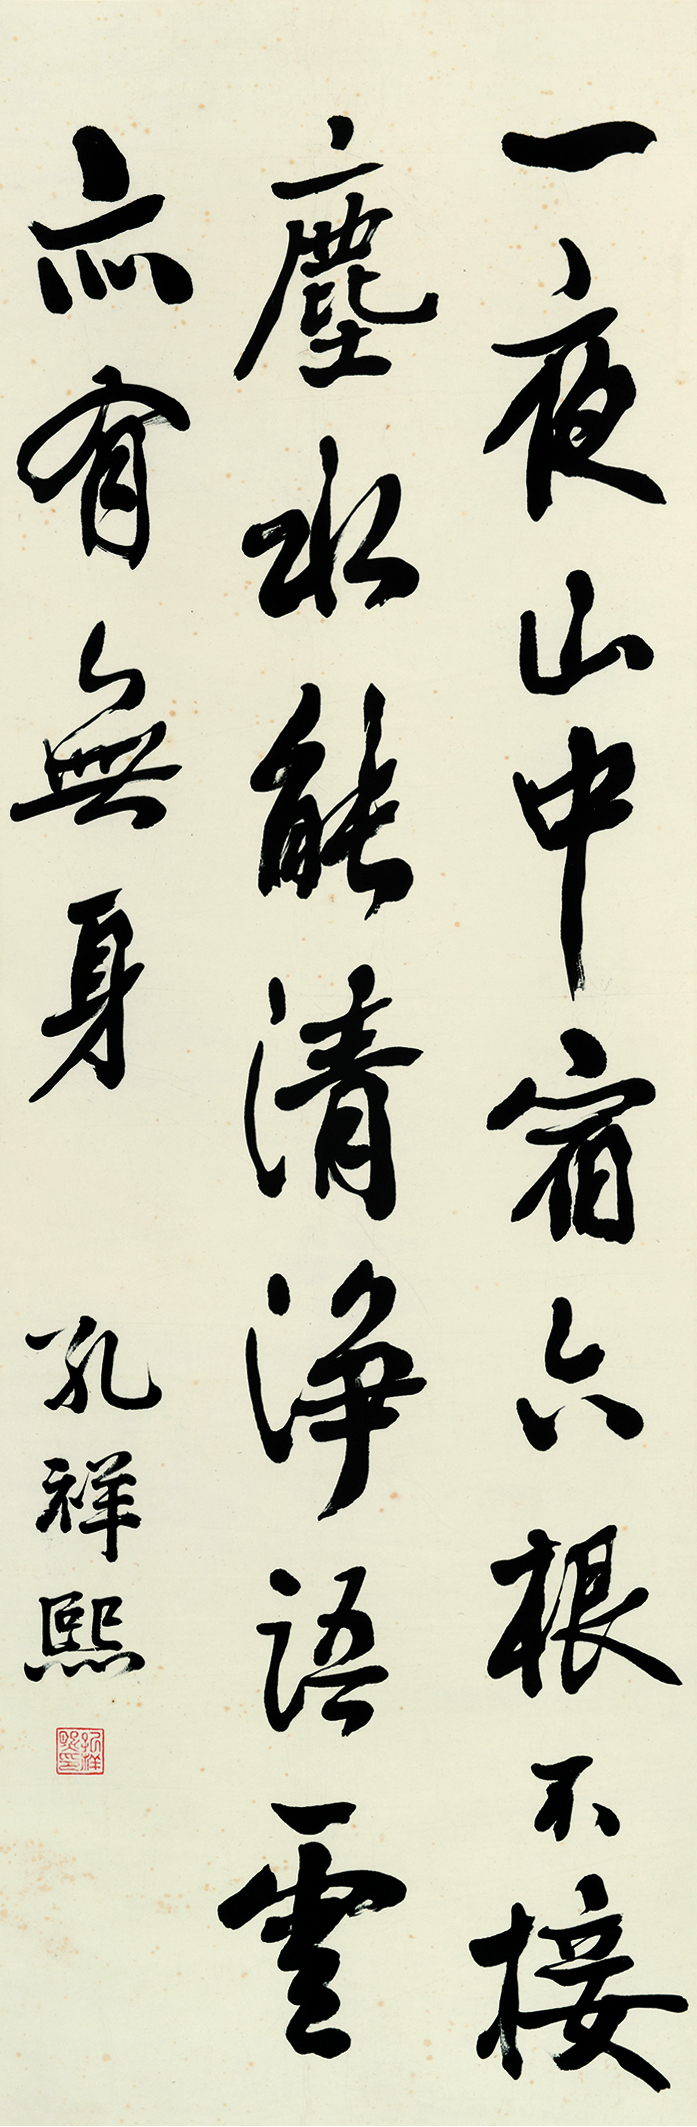 一夜山中宿六根不接
塵水能清淨語雲
亦有無身
孔祥熙
孔祥熙印